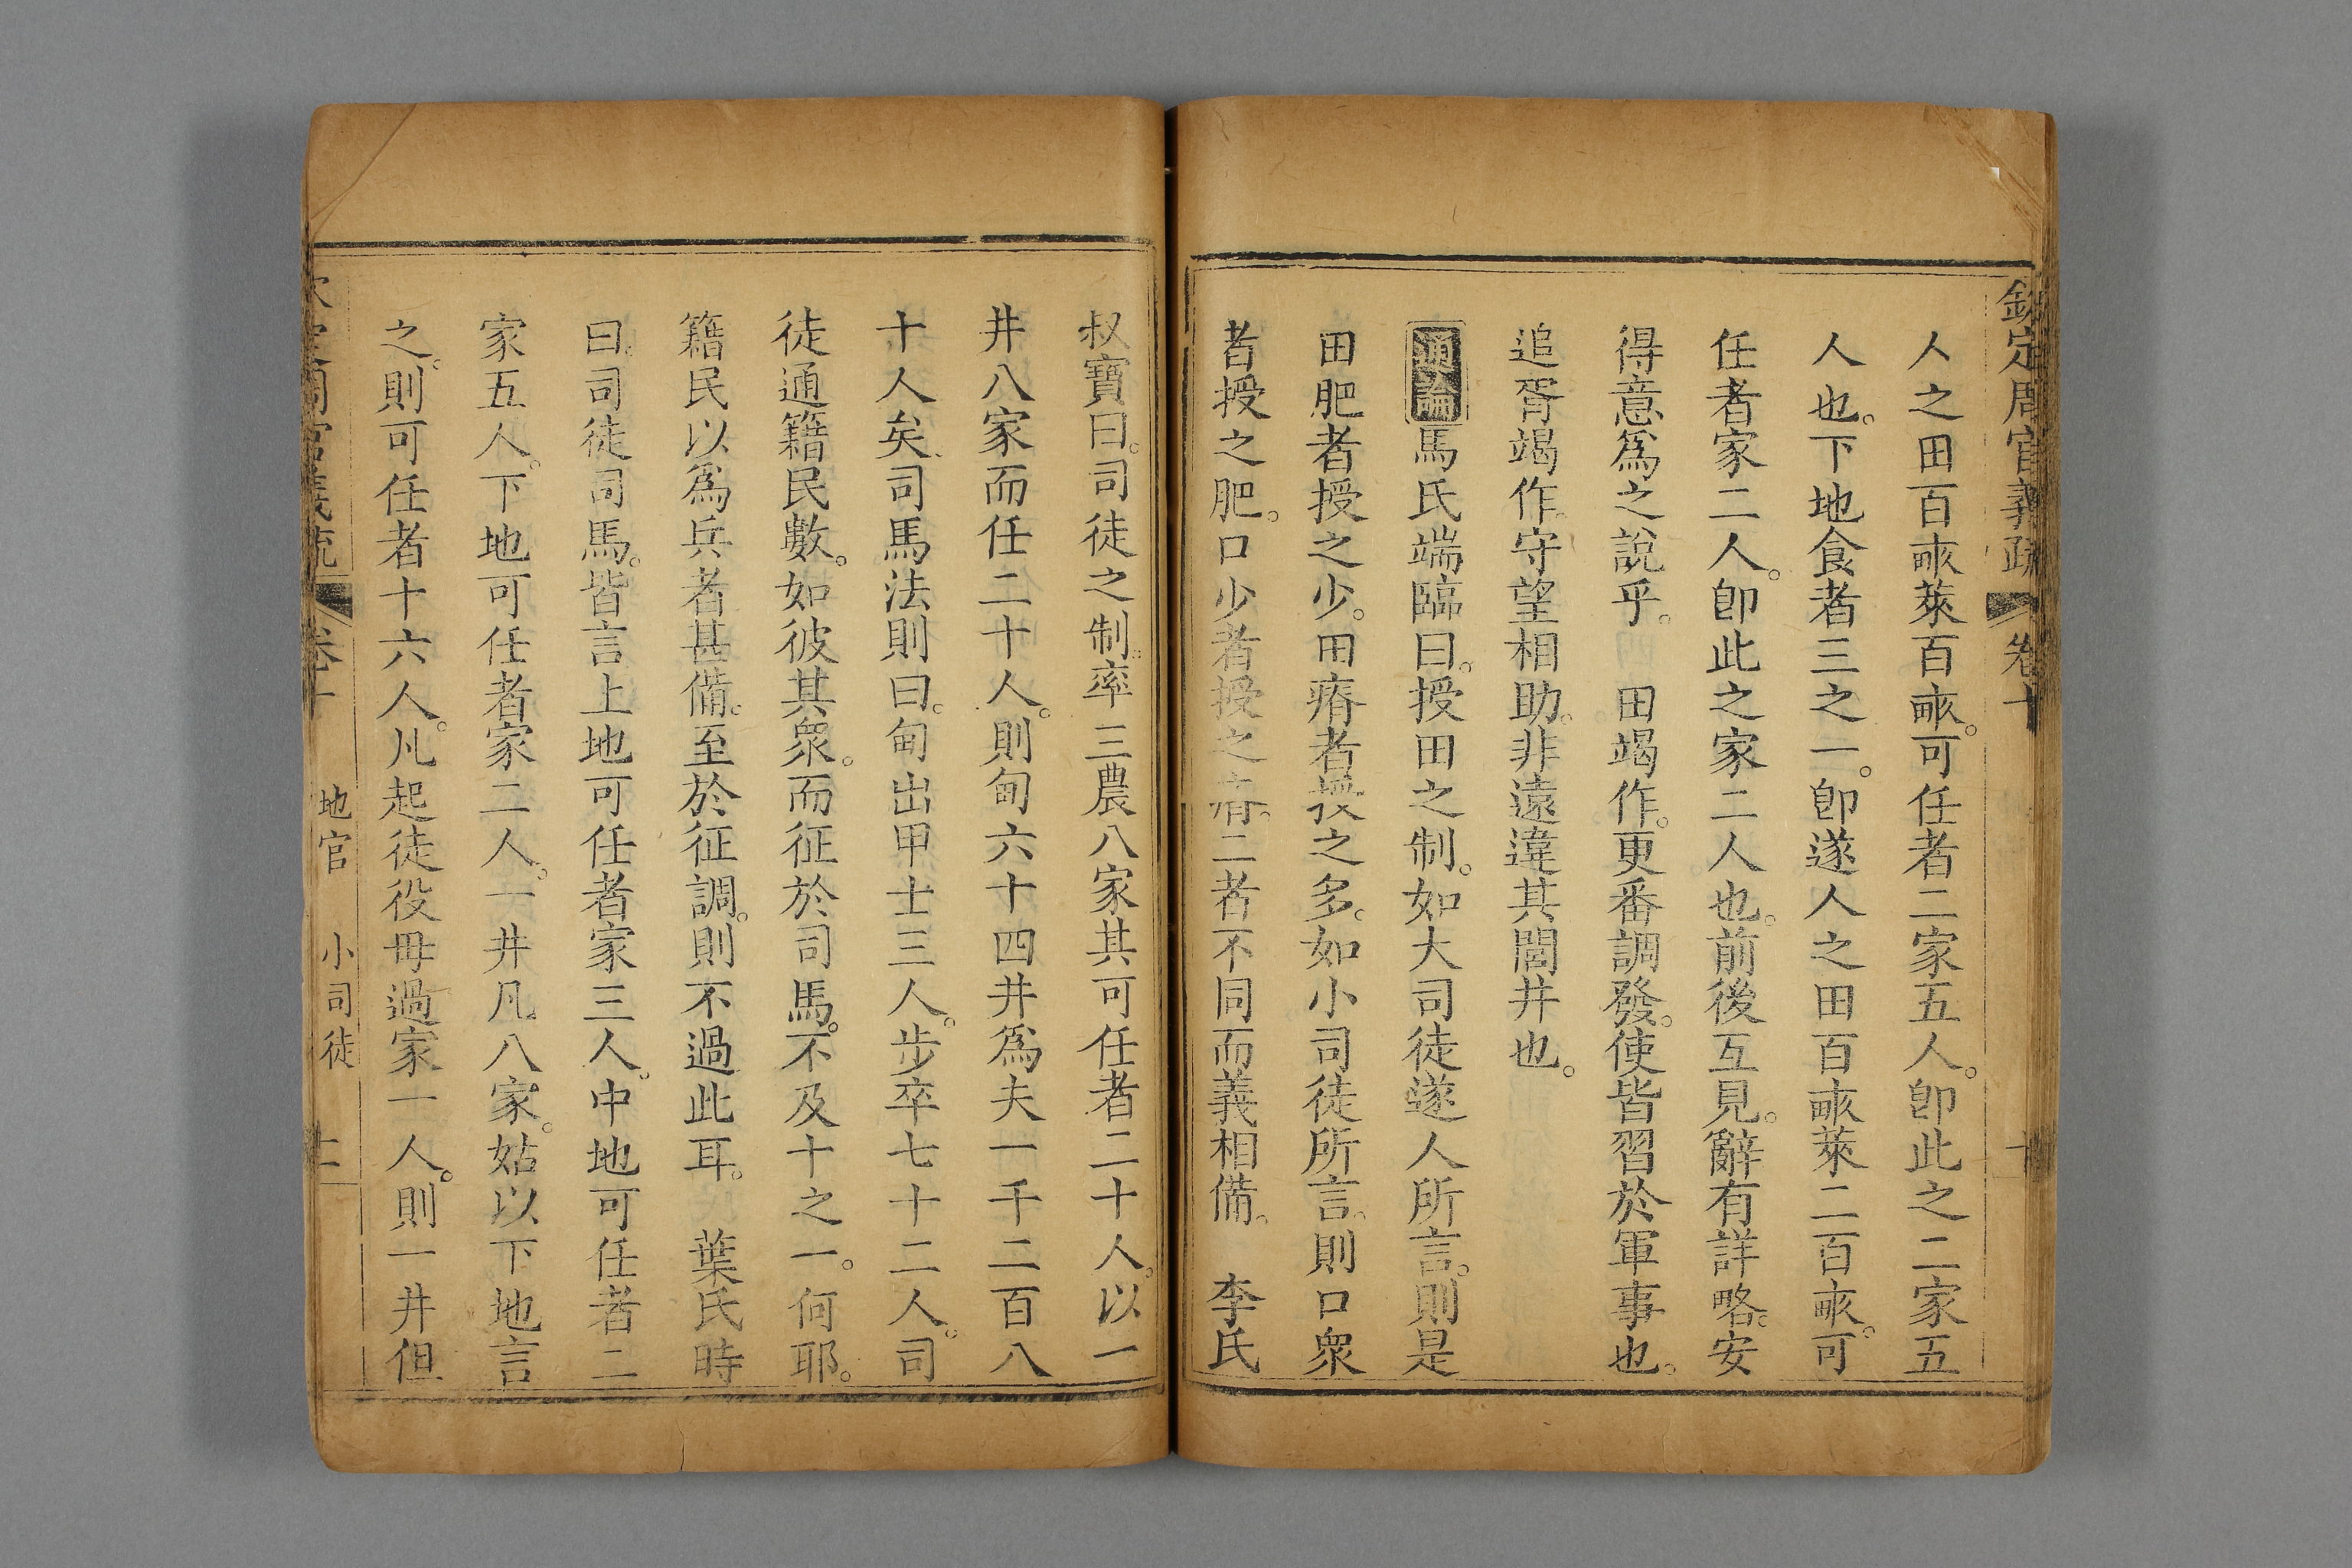 欽定周官義疏 卷十
人之田百畝萊百畝。可任者二家五人。卽此之二家五
人也。下地食者三之一。卽遂人之田百畝萊二百畝。可
任者家二人。卽此之家二人也。前後互見。辭有詳略。安
得意爲之說乎。 田竭作。更番調發。使皆習於軍事也。
追胥竭作。守望相助。非遠違其閭井也。
通論馬氏端臨曰。授田之制。如大司徒遂人所言。則是
田肥者授之少。田瘠者授之多。如小司徒所言。則口衆
者授之肥。口少者授之瘠。二者不同而義相備。 李氏
叔寶曰。司徒之制。率三農八家其可任者二十人。以一
井八家而任二十人。則甸六十四井爲夫一千二百八
十人矣。司馬法則曰。甸出甲士三人。步卒七十二人。司
徒通籍民數。如彼其衆。而征於司馬。不及十之一。何耶。
籍民以爲兵者甚備。至於征調。則不過此耳。 葉氏時
曰。司徒司馬。皆言上地可任者家三人。中地可任者二
家五人。下地可任者家二人。一井凡八家。姑以下地言
之。則可任者十六人。凡起徒役毋過家一人。則一井但
欽定周官義疏 卷十 地官 小司徒